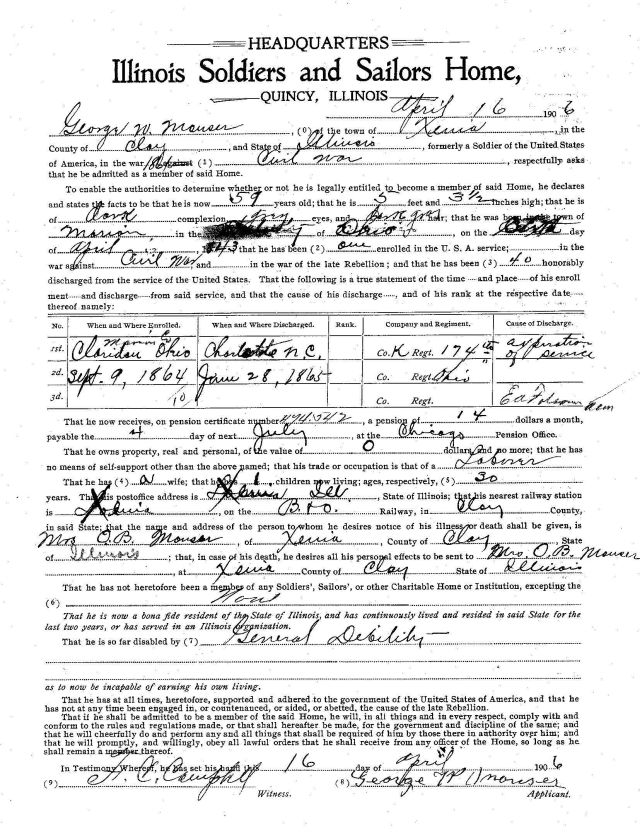 HEADQUARTERS
Illinois Soldiers and Sailors Home,
QUINCY, ILLINOIS April 16 1906
George W. Mouser, (0) of the town of Xenia, in the
County of Clay, and State of Illinois, formerly a Soldier of the United States
of America, in the war against (1) Civil War, respectfully asks
that he be admitted as a member of said Home.
To enable the authorities to determine whether or not he is legally entitled to become a member of said Home, he declares
and states the facts to be that he is now 59 years old; that he is 5 feet and 3½ inches high; that he is
of Dark complexion, Grey eyes, and Dark Grey hair; that he was born in the town of
Marion in the of Ohio, on the day
of April, 1843 that he has been (2) one enrolled in the U. S. A. service; in the
war against Civil War, and in the war of the late Rebellion; and that he has been (3) honorably
discharged from the service of the United States. That the following is a true statement of the time and place of his enroll
ment and discharge from said service, and that the cause of his discharge, and of his rank at the respective date
thereof namely:
No. When and Where Enrolled. When and Where Discharged. Rank. Company and Regiment. Cause of Discharge.
Marion Co
1st. Claridon Ohio Charlotte N.C. Co. K Regt. 174th Expiration of service
2d. Sept. 9, 1864 June 28, 1865 Co. Regt. Ohio
3d. Co. Regt.
That he now receives, on pension certificate number 494542, a pension of 14 dollars a month,
payable the 4 day of next July, at the Chicago Pension Office.
That he owns property, real and personal, of the value of 0 dollars, and no more; that he has
no means of self-support other than the above named; that his trade or occupation is that of a Laborer
That he has (4) a wife; that he has 1 children now living; ages, respectively, (5) 30
years. That his postoffice address is Xenia Ill, State of Illinois; that his nearest railway station
is Xenia, on the B. & O. Railway, in Clay County,
in said State; that the name and address of the person to whom he desires notice of his illness or death shall be given, is
Mrs O.B. Mouser, of Xenia, County of Clay, State
of Illinois; that, in case of his death, he desires all his personal effects to be sent to Mrs. O. B. Mouser
, at Xenia County of Clay State of Illinois
That he has not heretofore been a member of any Soldiers', Sailors', or other Charitable Home or Institution, excepting the
(6) None
That he is now a bona fide resident of the State of Illinois, and has continuously lived and resided in said State for the
last two years, or has served in an Illinois organization.
That he is so far disabled by (7) General Debility
as to now be incapable of earning his own living.
That he has at all times, heretofore, supported and adhered to the government of the United States of America, and that he
has not at any time been engaged in, or countenanced, or aided, or abetted, the cause of the late Rebellion.
That if he shall be admitted to be a member of the said Home, he will, in all things and in every respect, comply with and
conform to the rules and regulations made, or that shall hereafter be made, for the government and discipline of the same; and
that he will cheerfully do and perform any and all things that shall be required of him by those there in authority over him; and
that he will promptly, and willingly, obey all lawful orders that he shall receive from any officer of the Home, so long as he
shall remain a member thereof.
In Testimony Whereof, he has set his hand this 16 day of April 1906
(9) Campbell (8) George W Mouser
Witness. Applicant.